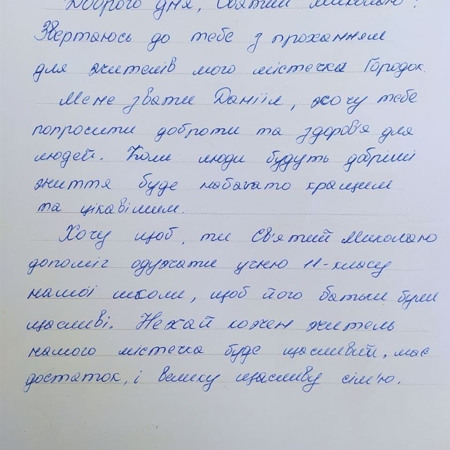 Доброго дня, Святий Миколаю!
Звертаюсь до тебе з проханням
для жителів мого містечка Городок.
Мене звати Данііл, хочу тебе
попросити доброти та здоров'я для
людей. Коли люди будуть добріші
життя буде набагато кращим
та цікавішим.
Хочу щоб, ти Святий Миколаю
допоміг одужати учню 11-класу
нашої школи, щоб його батьки були
щасливі. Нехай кожен житель
нашого містечка буде щасливий, має
достаток, і велику щасливу сім'ю.